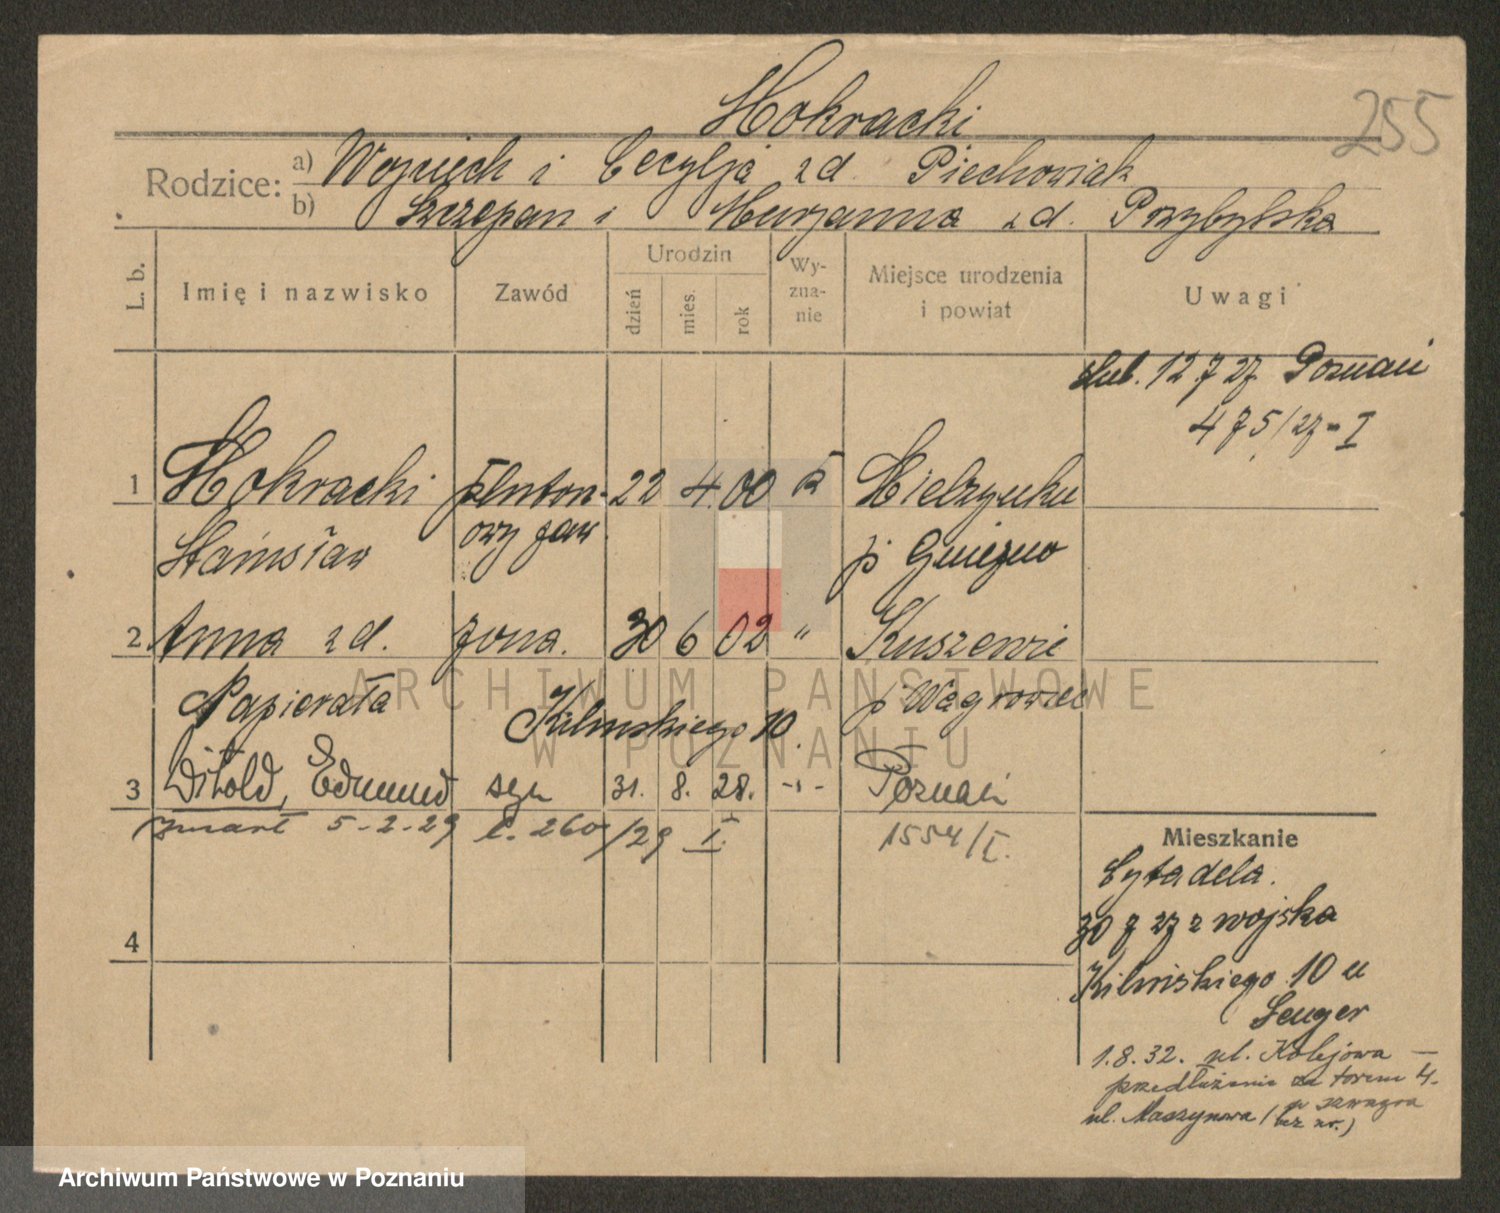 255
Mokracki
Rodzice: a) Wojciech i Cecylja zd. Piechowiak
b) Szczepan i Maryanna zd. Przybylska
L. b.
Imię i nazwisko
Zawód
Urodzin
dzień
mies.
rok
Wy-
zna-
nie
Miejsce urodzenia
i powiat
Uwagi
ślub. 12 7 27 Poznań
475/27-I
1 Mokracki pluton- 22 4 00 k Mielżynku
Stanisław owy zaw. p Gniezno
2. Anna zd. żona. 30 6 02 " Kuszewie
Papierała p Wągrowiec
Kilińskiego 10.
3 Witold, Edmund syn 31. 8. 28. -"- Poznań
zmarł 5-2-29 l. 260/29 I. 1554/I.
4
Mieszkanie
Cytadela.
30 7 27 z wojska
Kilińskiego 10 u
Senger
1.8.32. ul. Kolejowa —
przedłużenie za torem 4.
ul. Maszynowa (u szwagra
bez nr.)
ARCHIWUM PAŃSTWOWE
W POZNANIU
Archiwum Państwowe w Poznaniu